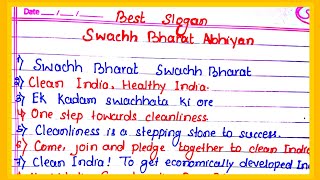 Date __/__/__
Best Slogan
Swachh Bharat Abhiyan
1) Swachh Bharat Swachh Bharat
2) Clean India, Healthy India.
3) Ek Kadam swachhata ki ore
4) One step towards cleanliness
5) Cleanliness is a stepping stone to success.
6) Come, join and pledge together to clean India
7) Clean India! To get economically developed In